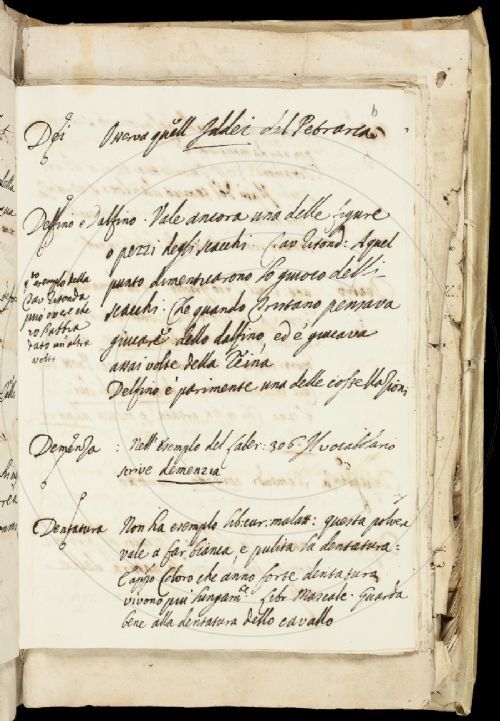 b
Dei Osserva quell Iddei del Petrarca
Delfino e Dalfino. Vale ancora una delle figure
o pezzi degli scacchi Tav Ritond: A quel
punto dimenticarono lo giuoco delli
scacchi. Che quando Tristano pensava
giucare dello dalfino, ed e' giucava
assai volte della Reina
Delfino è parimente una delle costellazioni
q.to esempio della
Tav Ritonda
può essere che
io l'abbia
dato un'altra
volta
Demenza : Nell'esempio del Laber: 306. Il vocabolario
scrive demenzia
Dentatura Non ha esempio Lib: cur. malatt: questa polvere
vale a far bianca, e pulita la dentatura:
Coloro che anno forte dentatura
vivono più lungam.te Libr Mascalc. Guarda
bene alla dentatura dello cavallo